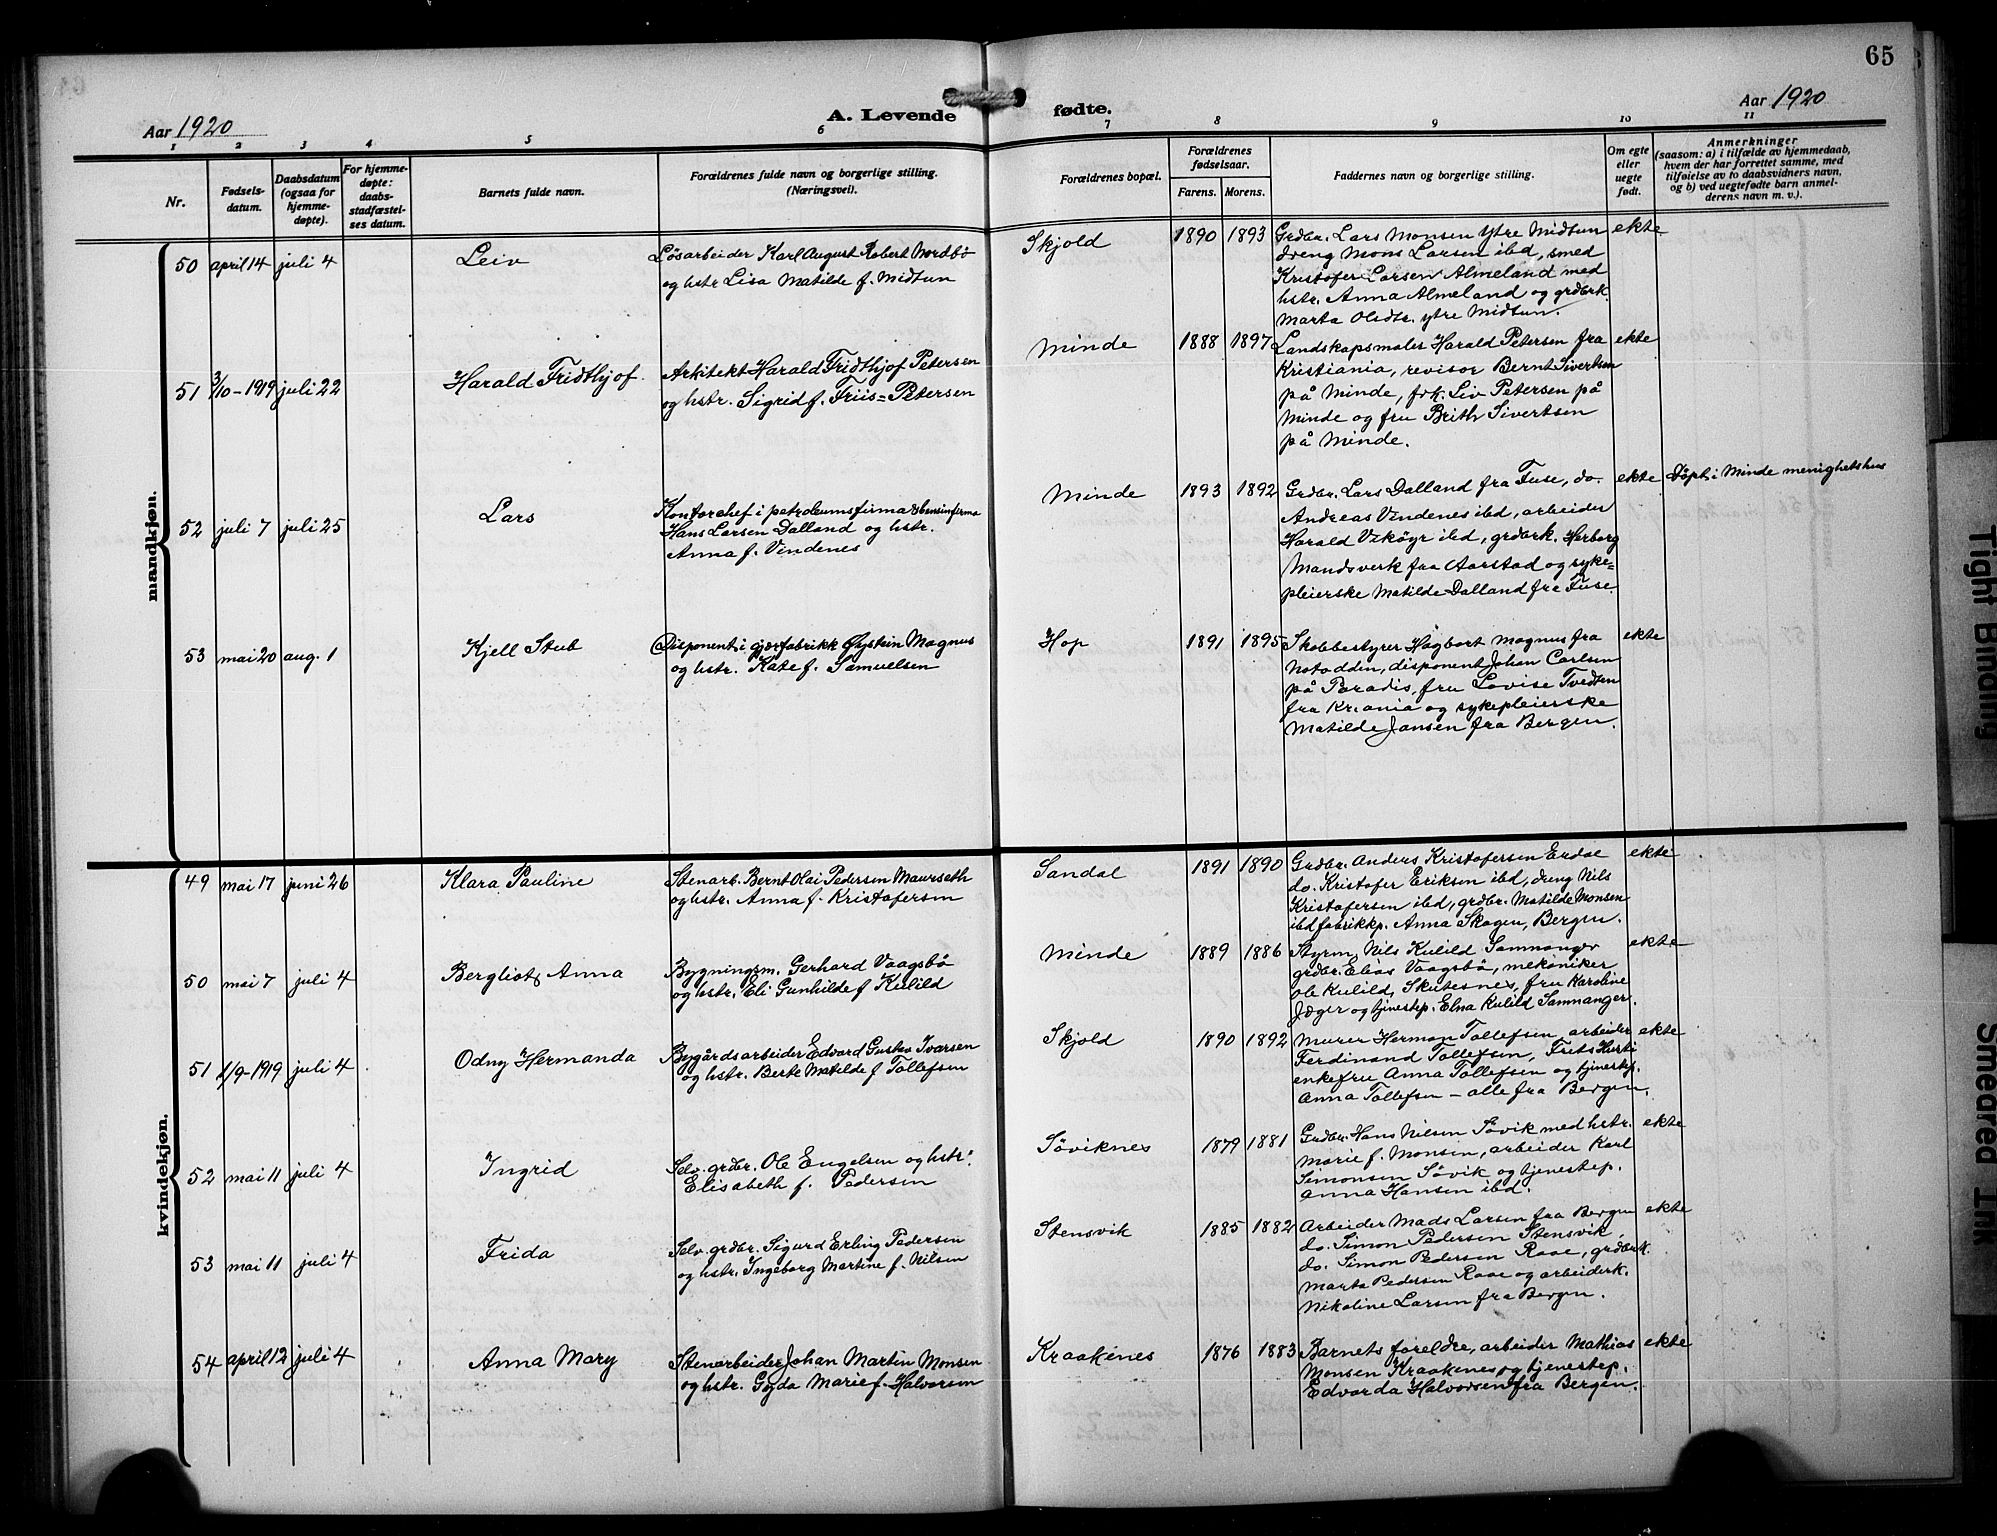 65
Aar 1920
A. Levende fødte.
Aar 1920
1 2 3 4 5 6 7 8 9 10 11
Nr.
Fødsels-
datum.
Daabsdatum
(ogsaa for
hjemme-
døpte).
For hjemme-
døpte:
daabs-
stadfæstel-
ses datum.
Barnets fulde navn.
Forældrenes fulde navn og borgerlige stilling.
(Næringsvei).
Forældrenes bopæl.
Forældrenes
fødselsaar.
Farens. Morens.
Faddernes navn og borgerlige stilling.
Om egte
eller
uegte
født.
Anmerkninger
(saasom: a) i tilfælde av hjemmedaab,
hvem der har forrettet samme, med
tilføielse av to daabsvidners navn,
og b) ved uegtefødte barn anmel-
derens navn m. v.).
mandkjøn.
50 april 14 juli 4 Leiv
Løsarbeider Karl August Robert Nordbö
og hstr Lisa Matilde f. Midtun
Skjold 1890 1893
Grdbr. Lars Monsen ytre Midtun
dreng Mons Larsen ibd, smed
Kristofer Larsen Almeland med
hstr. Anna Almeland og grdbrk.
Marta Olsdtr. ytre Midtun.
ekte
51 3/10-1919 juli 22 Harald Fridthjof.
Arkitekt Harald Fridthjof Petersen
og hstr. Sigrid f. Friis-Petersen
Minde 1888 1897
Landskapsmaler Harald Petersen fra
Kristiania, revisor Bernt Sivertsen
på Minde, frk. Liv Petersen på
Minde og fru Brith Sivertsen
på Minde.
ekte
52 juli 7 juli 25 Lars
Kontorchef i petroleumsfirma & bensinfirma
Hans Larsen Dalland og hstr.
Anna f. Vindenes
Minde 1893 1892
Grdbr. Lars Dalland fra Fuse, do.
Andreas Vindenes ibd, arbeider
Harald Usköyr ibd, grdbrk. Herborg
Mandsverk fra Aarstad og syke-
pleierske Matilde Dalland fra Fuse.
ekte
Döpt i Minde menighetshus
53 mai 20 aug. 1 Kjell Stub
Disponent i gjærfabrikk Øystein Magnus
og hstr. Kate f. Samuelsen
Hop 1891 1895
Skolebestyrer Hagbart Magnus fra
Notodden, disponent Johan Carlsen
på Paradis, fru Lovise Tvedten
fra Kr.ania og sykepleierske
Matilde Jansen fra Bergen.
ekte
kvindekjøn.
49 mai 17 juni 26 Klara Pauline
Stenarb. Bernt Olai Pedersen Maurseth
og hstr. Anna f. Kristofersen
Sandal 1891 1890
Grdbr. Anders Kristofersen Erdal
do. Kristofer Eriksen ibd, dreng Nils
Kristofersen ibd, grdbr. Matilde Monsen
ibd fabrikkp. Anna Skagen, Bergen.
ekte
50 mai 7 juli 4 Bergliot Anna
Bygningsm. Gerhard Vaagsbö
og hstr. Eli Gunhilde f Kulild
Minde 1889 1886
Styrm. Nils Kulild Samnanger
grdbr. Elias Vaagsbö, mekaniker
Ole Kulild, Skutesnes, fru Karoline
Jæger og tjenestep. Elna Kulild Samnanger.
ekte
51 1/9-1919 juli 4 Odny Hermanda
Bygårdsarbeider Edvard Gustav Ivarsen
og hstr. Berte Matilde f Tollefsen
Skjold 1890 1892
Murer Herman Tollefsen, arbeider
Ferdinand Tollefsen, Frits
enkefru Anna Tollefsen og tjenestep.
Anna Tollefsen - alle fra Bergen.
ekte
52 mai 11 juli 4 Ingrid
Selv. grdbr. Ole Engelsen og hstr.
Elisabeth f. Pedersen
Söviknes 1879 1881
Grdbr. Hans Nilsen Sövik med hstr.
Marie f. Monsen, arbeider Karl
Simonsen Sövik og tjenestep.
Anna Hansen ibd.
ekte
53 mai 11 juli 4 Frida
Selv. grdbr. Sigurd Erling Pedersen
og hstr. Ingeborg Martine f. Nilsen
Stensvik 1885 1882
Arbeider Mads Larsen fra Bergen
do. Simon Pedersen Stensvik
do. Simon Pedersen Raae, grdbrk.
Marta Pedersen Raae og arbeiderk.
Nikoline Larsen fra Bergen.
ekte
54 april 12 juli 4 Anna Mary
Stenarbeider Johan Martin Monsen
og hstr. Gyda Marie f. Halvorsen
Kraakenes 1876 1883
Barnets foreldre, arbeider Mathias
Monsen Kraakenes og tjenestep.
Edvarda Halvorsen fra Bergen.
ekte
Tight Binding
Smeared Ink